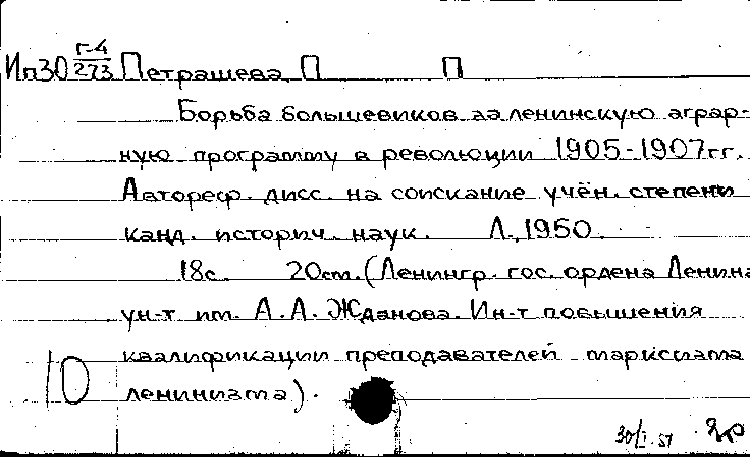 Ип30 Г-4/273 Петрашева, П П
Борьба большевиков за ленинскую аграр-
ную программу в революции 1905-1907гг.
Автореф. дисс. на соискание учён. степени
канд. историч. наук. Л., 1950.
18с. 20см. (Ленингр. гос. ордена Ленина
ун-т им. А.А. Жданова. Ин-т повышения
квалификации преподавателей марксизма
ленинизма).
30/I.51